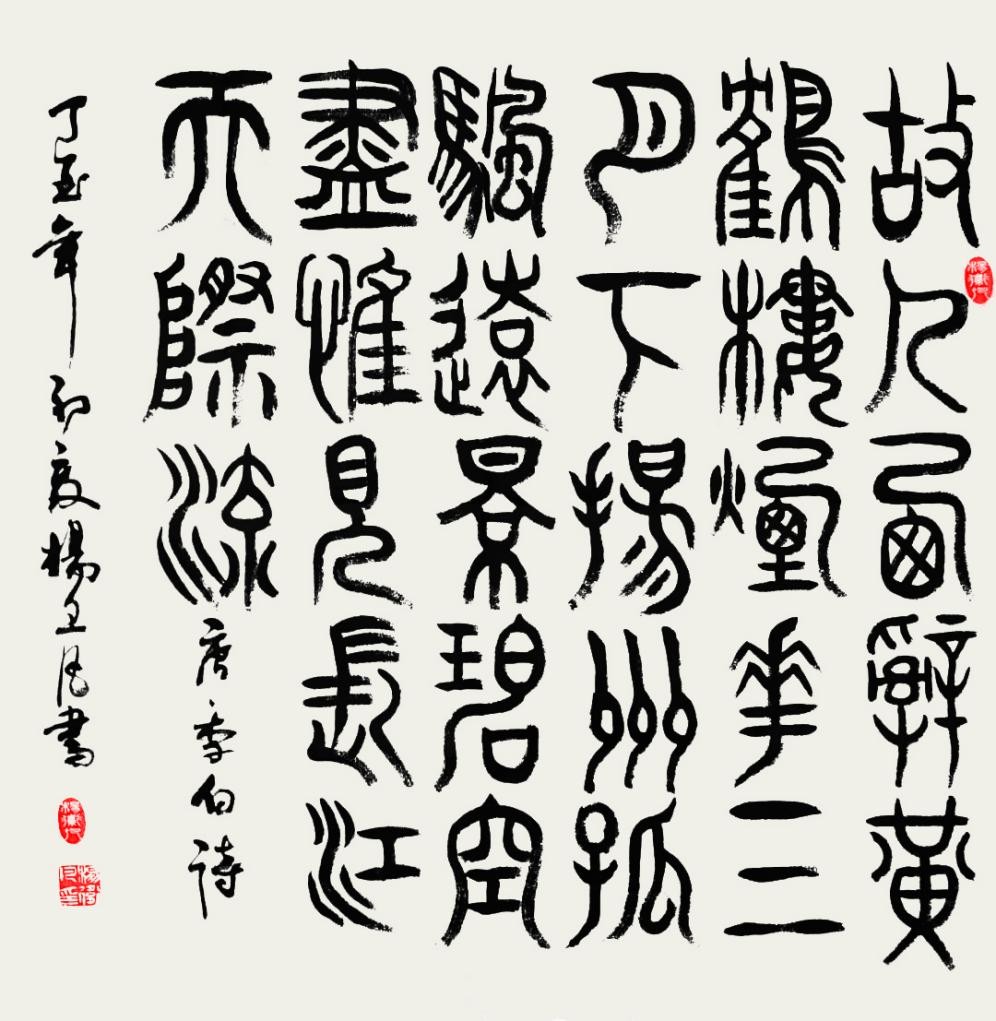 故人西辭黃
鶴樓煙華三
月下揚州孤
颿遠景碧空
盡惟見長江
天際流
唐李白詩
丁年初夏楊書